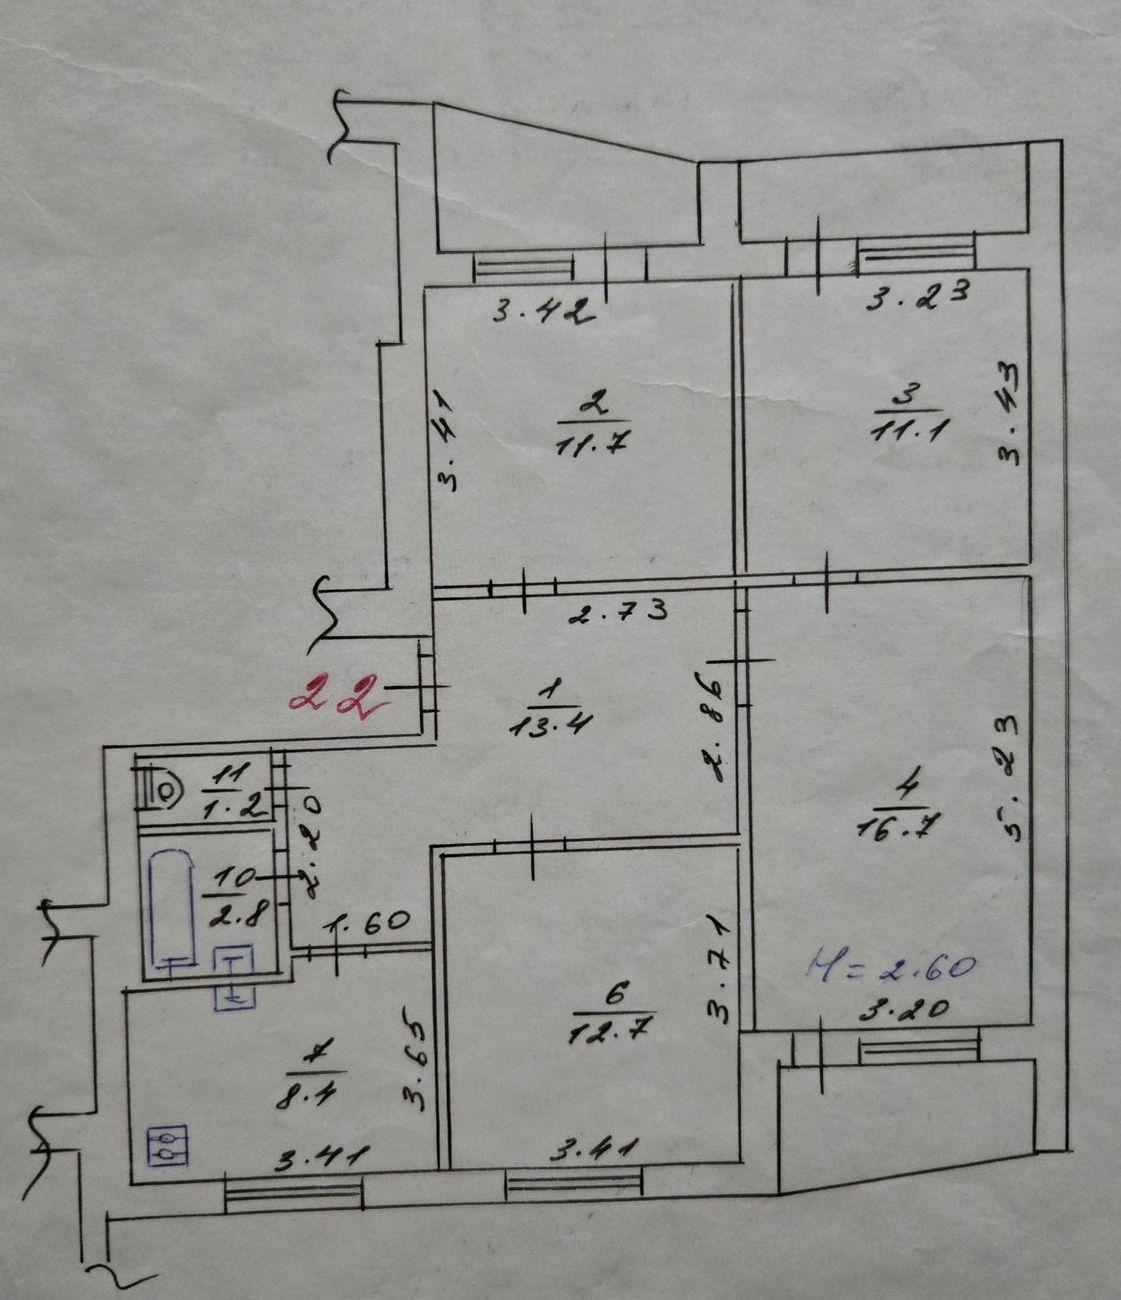 3.42
3.23
3.41
2
11.7
3
11.1
3.43
2.73
22
1
13.4
2.86
11
1.2
2.20
4
16.7
5.23
10
2.8
1.60
H = 2.60
3.20
6
12.7
3.71
7
8.4
3.65
3.41
3.41